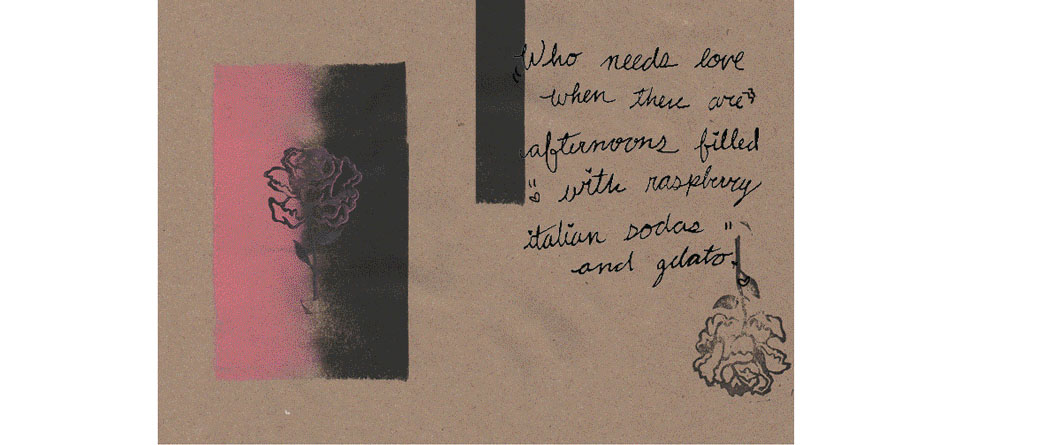 Who needs love
when there are
afternoons filled
with raspberry
italian sodas
and gelato.